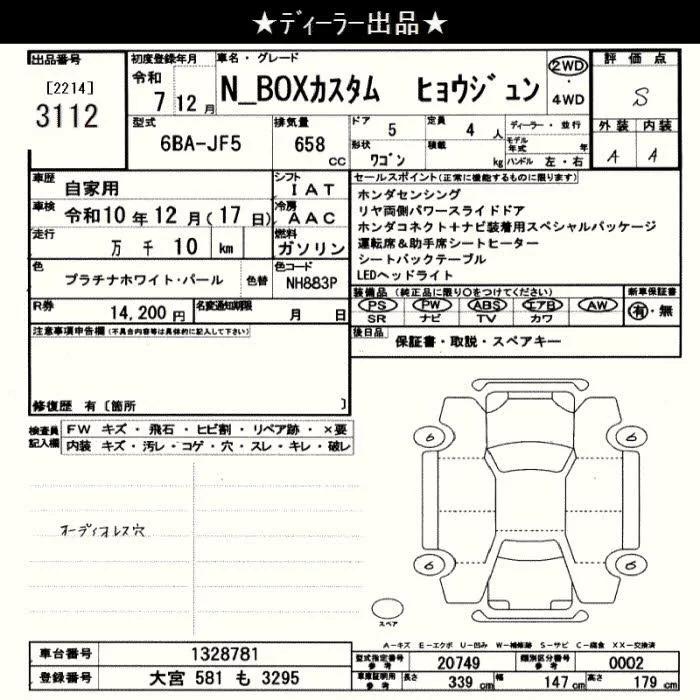 ★ディーラー出品★
出品番号
[2214]
3112
初度登録年月
令和
7 12 月
車名・グレード
N_BOXカスタム ヒョウジュン
2WD
・
4WD
評価点
S
外装 内装
A A
型式
6BA-JF5
排気量
658
cc
ドア 5
定員 4 人
形状
ワゴン
積載
kg
ディーラー・並行
モデル年式 年
ハンドル 左・右
車歴
自家用
シフト
IAT
車検 令和10年12月(17日)
冷房
AAC
走行
万 千 10 km
燃料
ガソリン
色
プラチナホワイト・パール
色替
色コード
NH883P
R券
14,200 円
名変通知期限
月 日
セールスポイント(正常に機能するものに限ります)
ホンダセンシング
リヤ両側パワースライドドア
ホンダコネクト+ナビ装着用スペシャルパッケージ
運転席&助手席シートヒーター
シートバックテーブル
LEDヘッドライト
装備品 (純正品に限り○をつけてください)
新車保証書
PS PW ABS エアB AW
SR ナビ TV カワ
有・無
後日品
保証書・取説・スペアキー
注意事項申告欄(不具合内容等は具体的に記入して下さい)
修復歴 有〔箇所 〕
検査員記入欄
FW キズ・飛石・ヒビ割・リペア跡・×要
内装 キズ・汚レ・コゲ・穴・スレ・キレ・破レ
オーディオレス穴
6 6
6 6
スペア
A−キズ E−エクボ U−凹み W−補修跡 S−サビ C−腐食 XX−交換済
車台番号
1328781
登録番号
大宮 581 も 3295
型式指定番号
参考
20749
類別区分番号
参考
0002
車庫証明用
参考
長さ 339 cm
幅 147 cm
高さ 179 cm